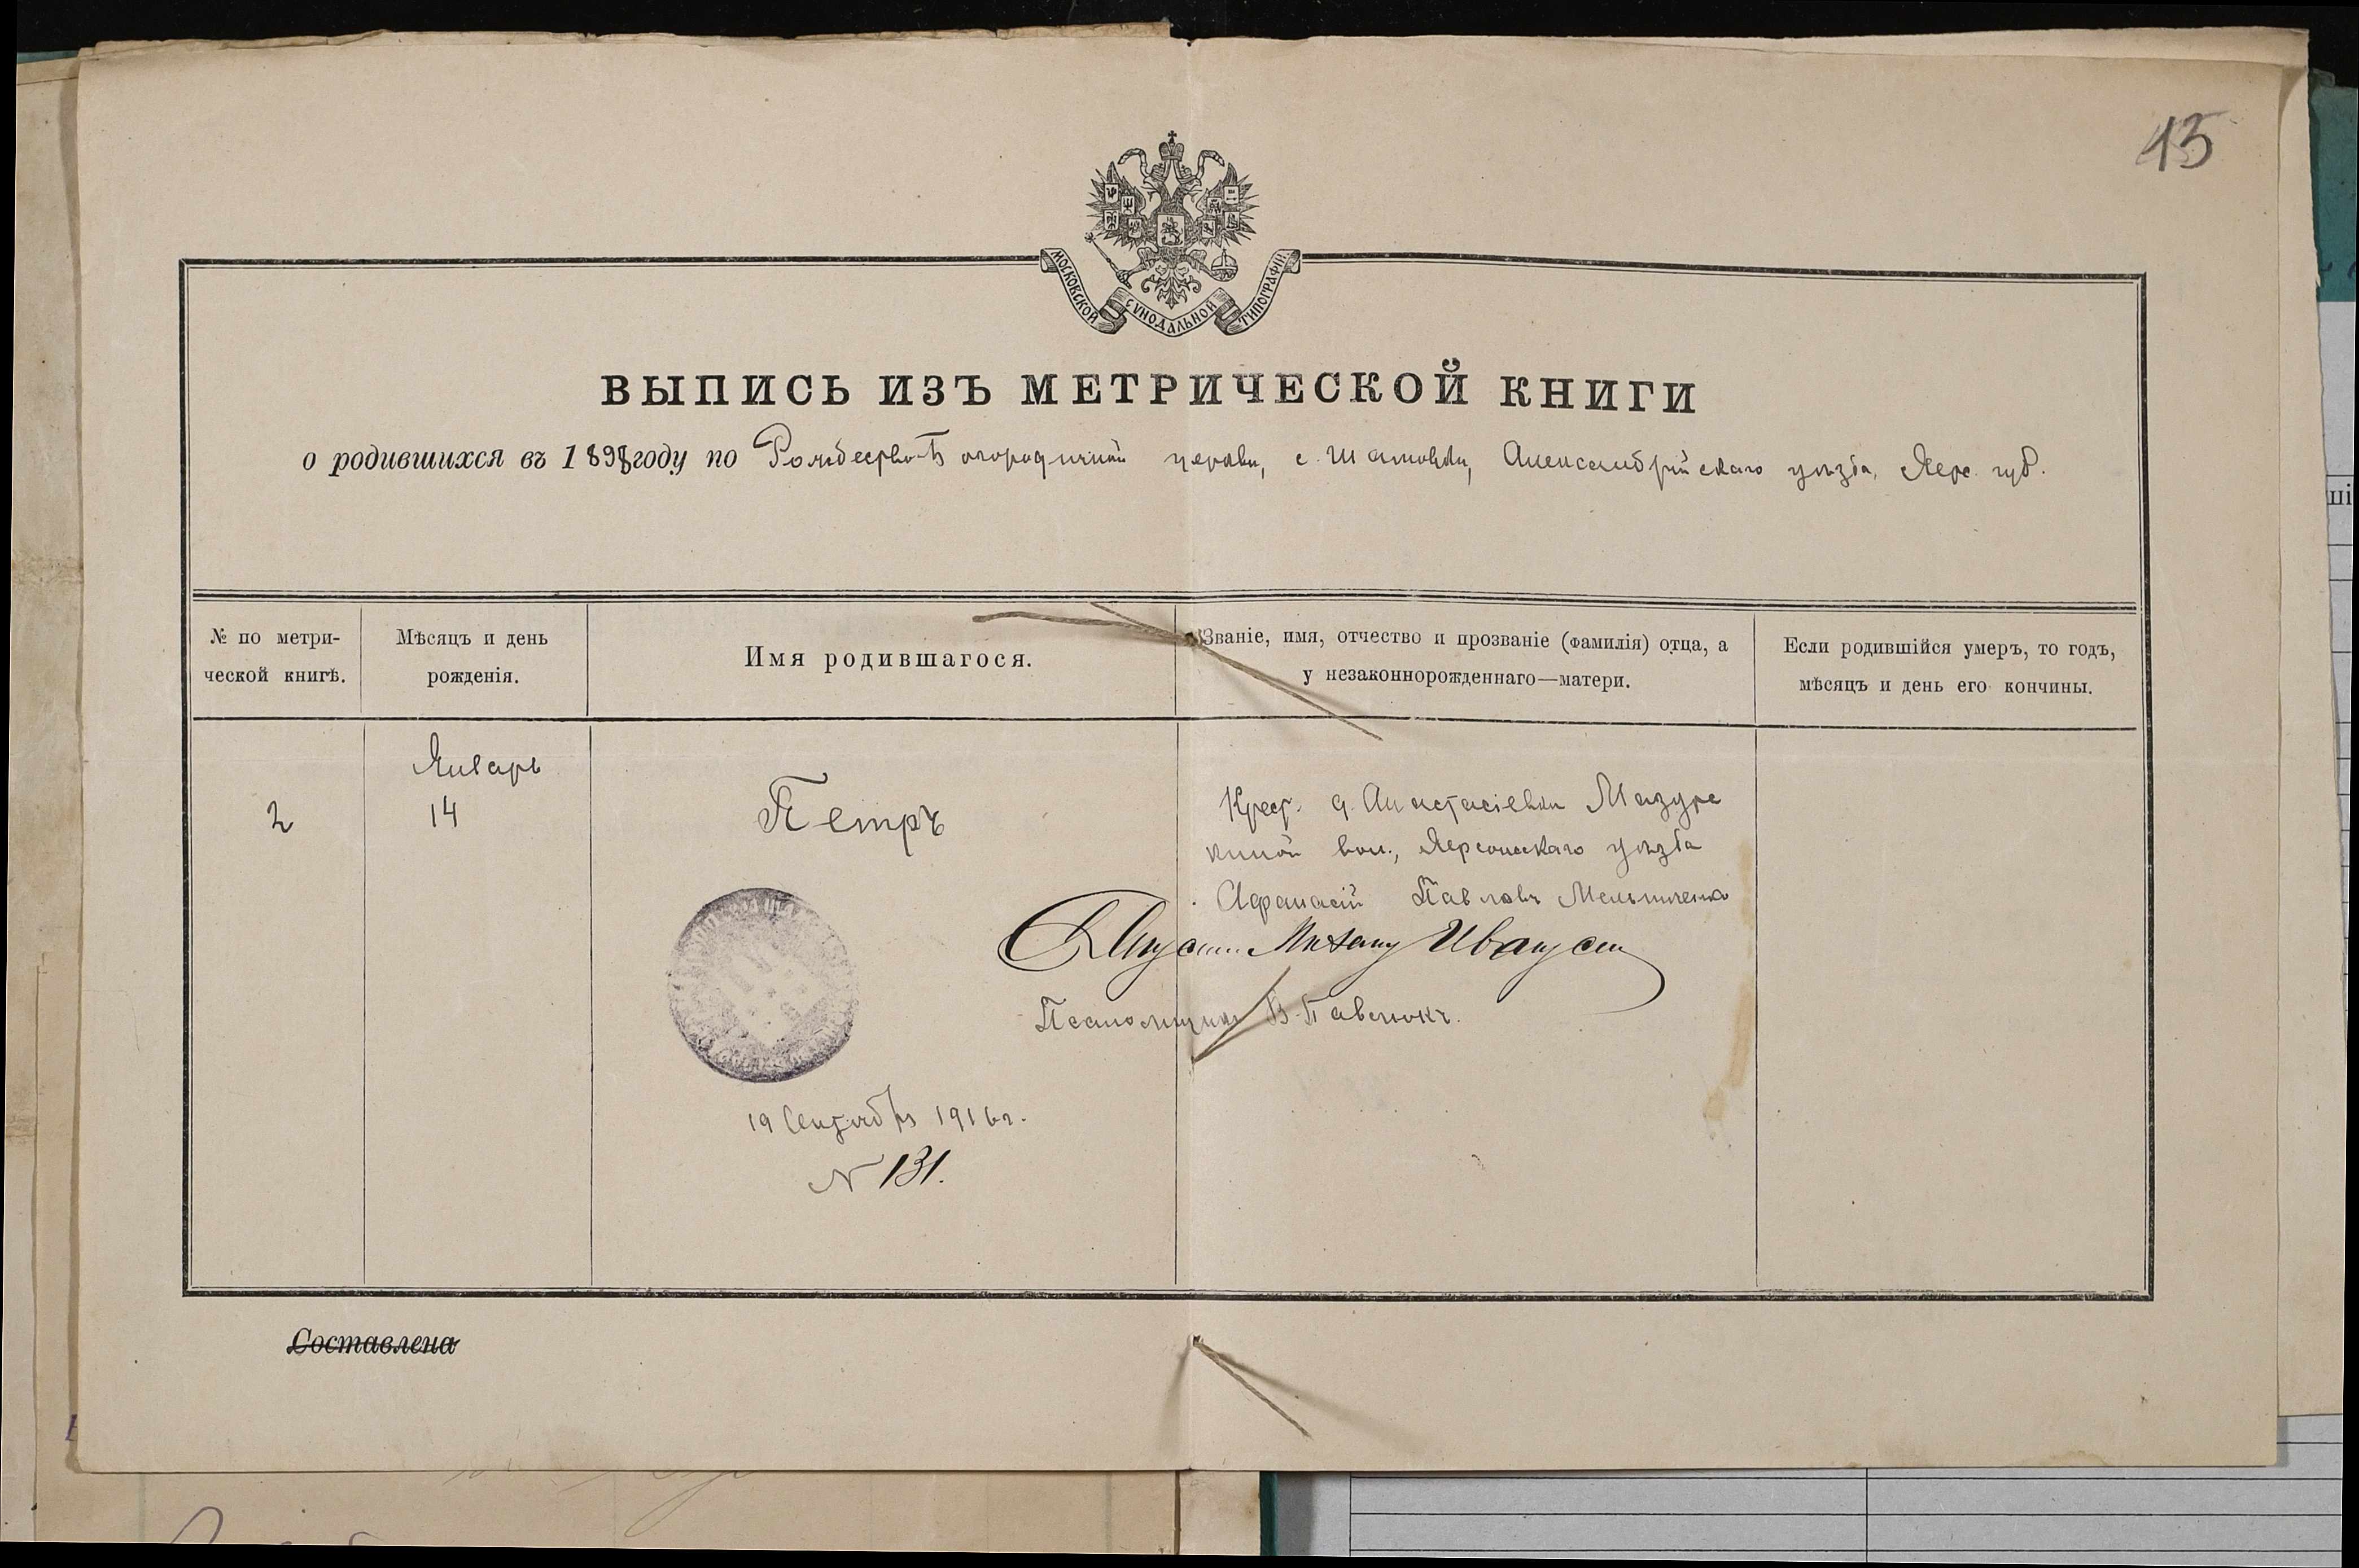 15
МОСКОВСКОЙ СѴНОДАЛЬНОЙ ТИПОГРАФІИ
ВЫПИСЬ ИЗЪ МЕТРИЧЕСКОЙ КНИГИ
о родившихся въ 1898 году по Рождество-Богородичной церкви, с. Шамовки, Александрійскаго уѣзда, Херс. губ.
№ по метри-
ческой книгѣ.
Мѣсяцъ и день
рожденія.
Имя родившагося.
Званіе, имя, отчество и прозваніе (фамилія) отца, а
у незаконнорожденнаго—матери.
Если родившійся умеръ, то годъ,
мѣсяцъ и день его кончины.
2
Январь
14
Петръ
Крест. д. Анастасіевки
вол., Херсонскаго уѣзда
Афанасій Павловъ Мельниченко
Псаломщикъ В. Павлюкъ.
19 Сентября 1916 г.
N 131.
Составлена